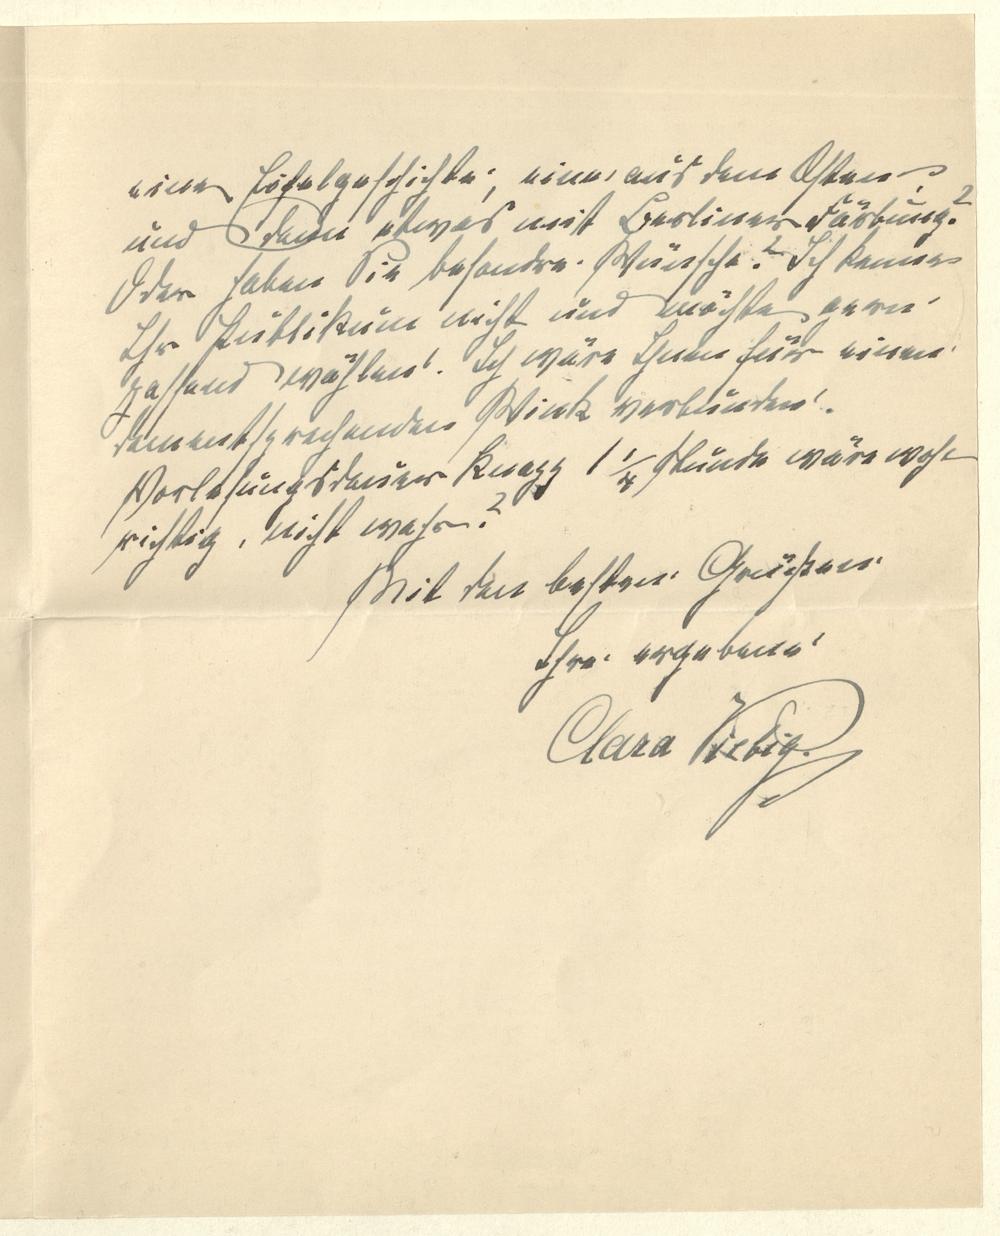 eine Eifelgeschichte, eine aus dem Osten,
und dann etwas mit Berliner Färbung?
Oder haben Sie besondre Wünsche? Ich kenne
Ihr Publikum nicht und möchte gern
passend wählen. Ich wäre Ihnen für einen
dementsprechenden Wink verbunden.
Vorlesungsdauer knapp 1 1/4 Stunde wäre wohl
richtig, nicht wahr?
Mit den besten Grüßen
Ihre ergebene
Clara Viebig.